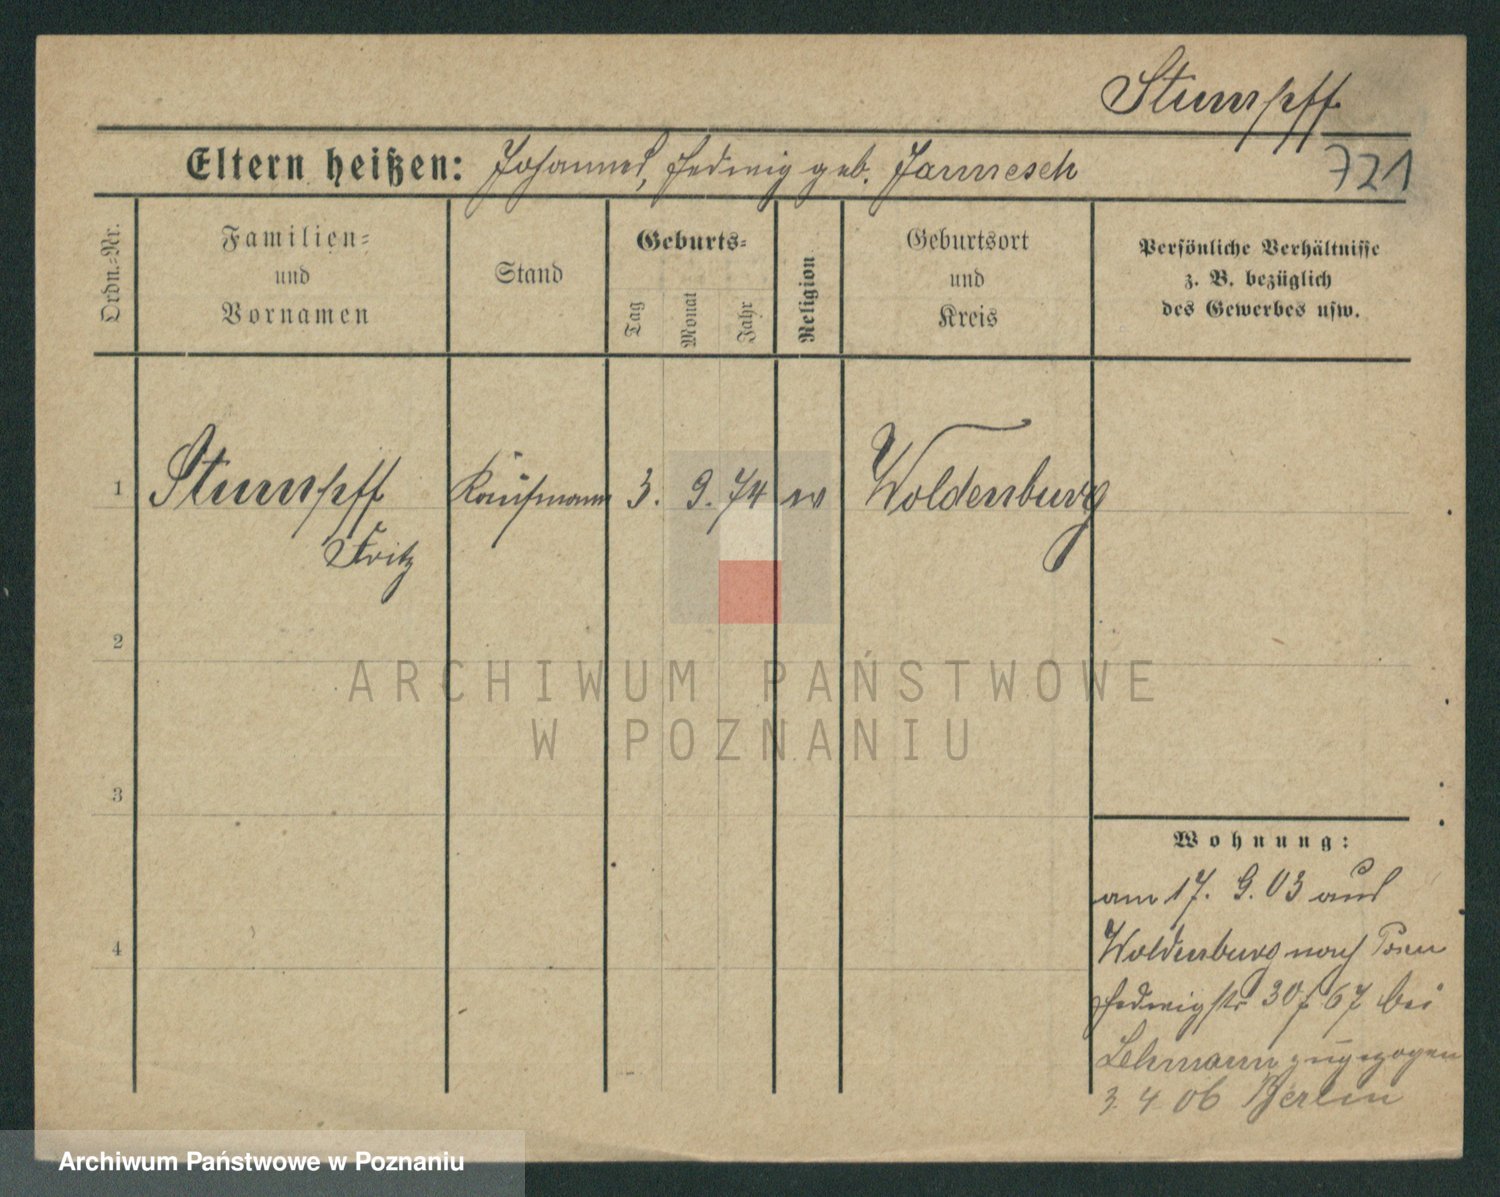 Stumpff
721
Eltern heißen: Johannes, Hedwig geb. Jannesch
Ordn.-Nr.
Familien-
und
Vornamen
Stand
Geburts-
Tag
Monat
Jahr
Religion
Geburtsort
und
Kreis
Persönliche Verhältnisse
z. B. bezüglich
des Gewerbes usw.
1 Stumpff Kaufmann 3. 9. 74 ev Woldenburg
Fritz
2
3
4
ARCHIWUM PAŃSTWOWE
W POZNANIU
Wohnung:
am 17. 9. 03 aus
Woldenburg nach Posen
Hedwigstr 30 / 67 bei
Lehmann zugezogen
3. 4 06 Berlin
Archiwum Państwowe w Poznaniu